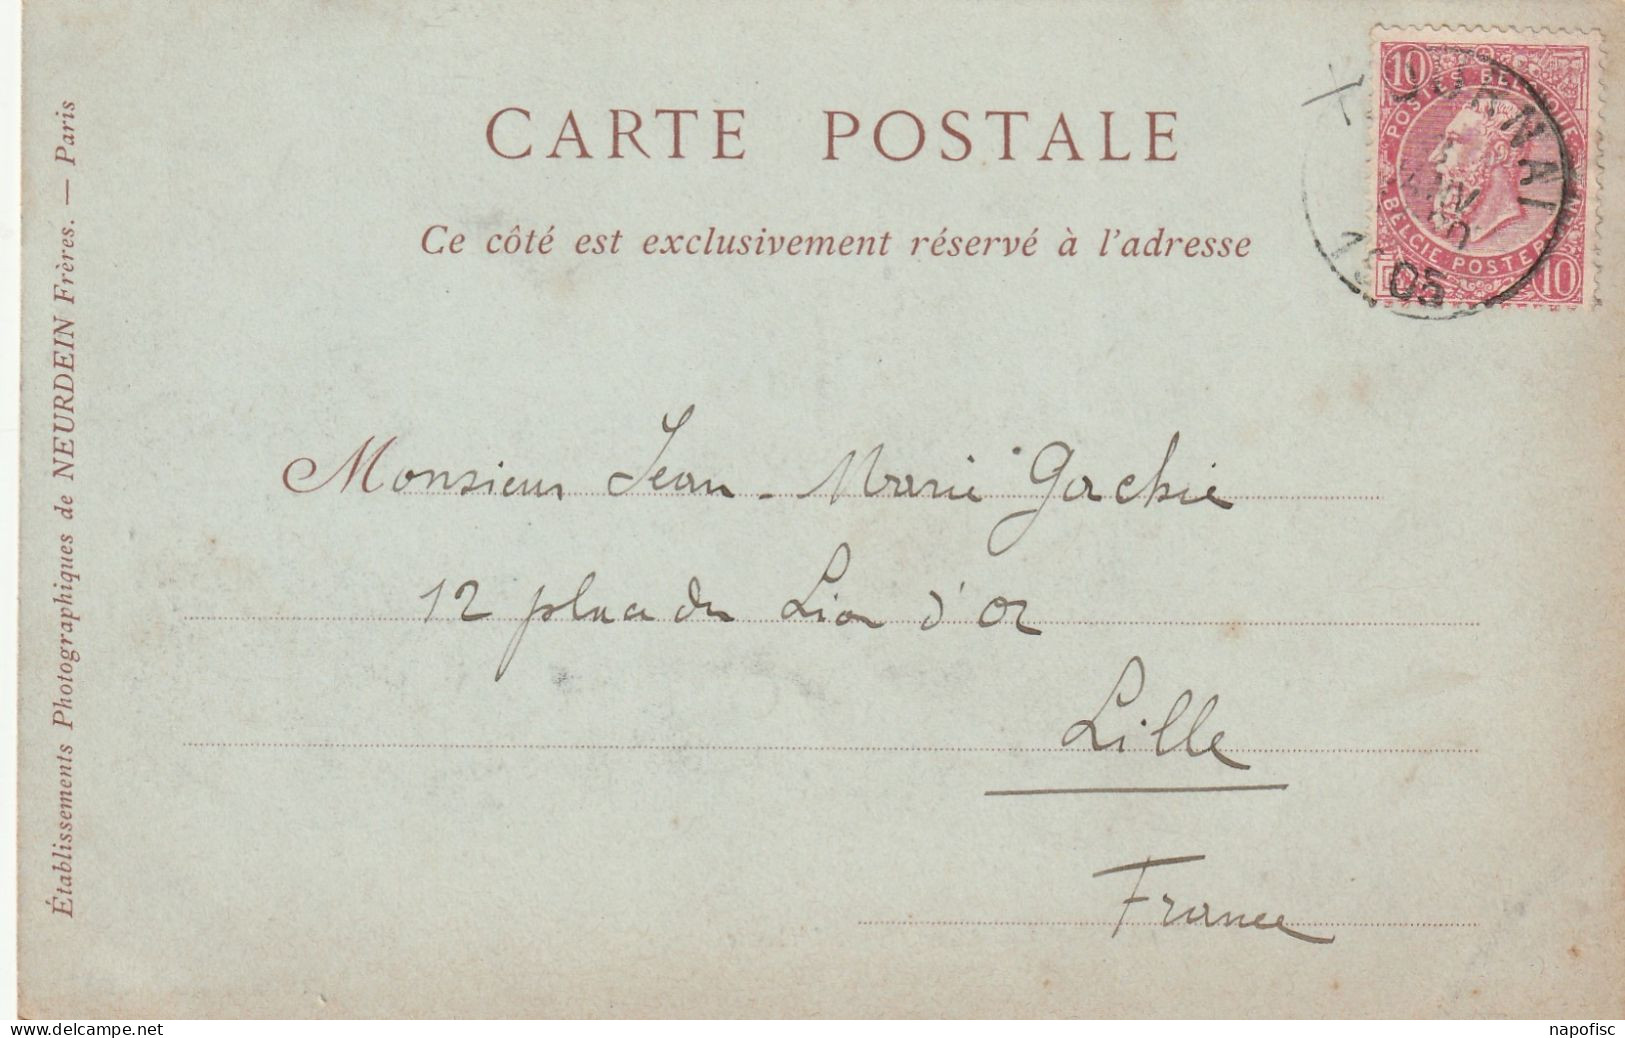 CARTE POSTALE
Ce côté est exclusivement réservé à l'adresse
Établissements Photographiques de NEURDEIN Frères. — Paris
10 10
POSTES BELGIQUE
BELGIE POSTERIJEN
TOURNAI
1905
Monsieur Jean-Marie Gachie
12 place du Lion d'or
Lille
France
www.delcampe.net
napofisc